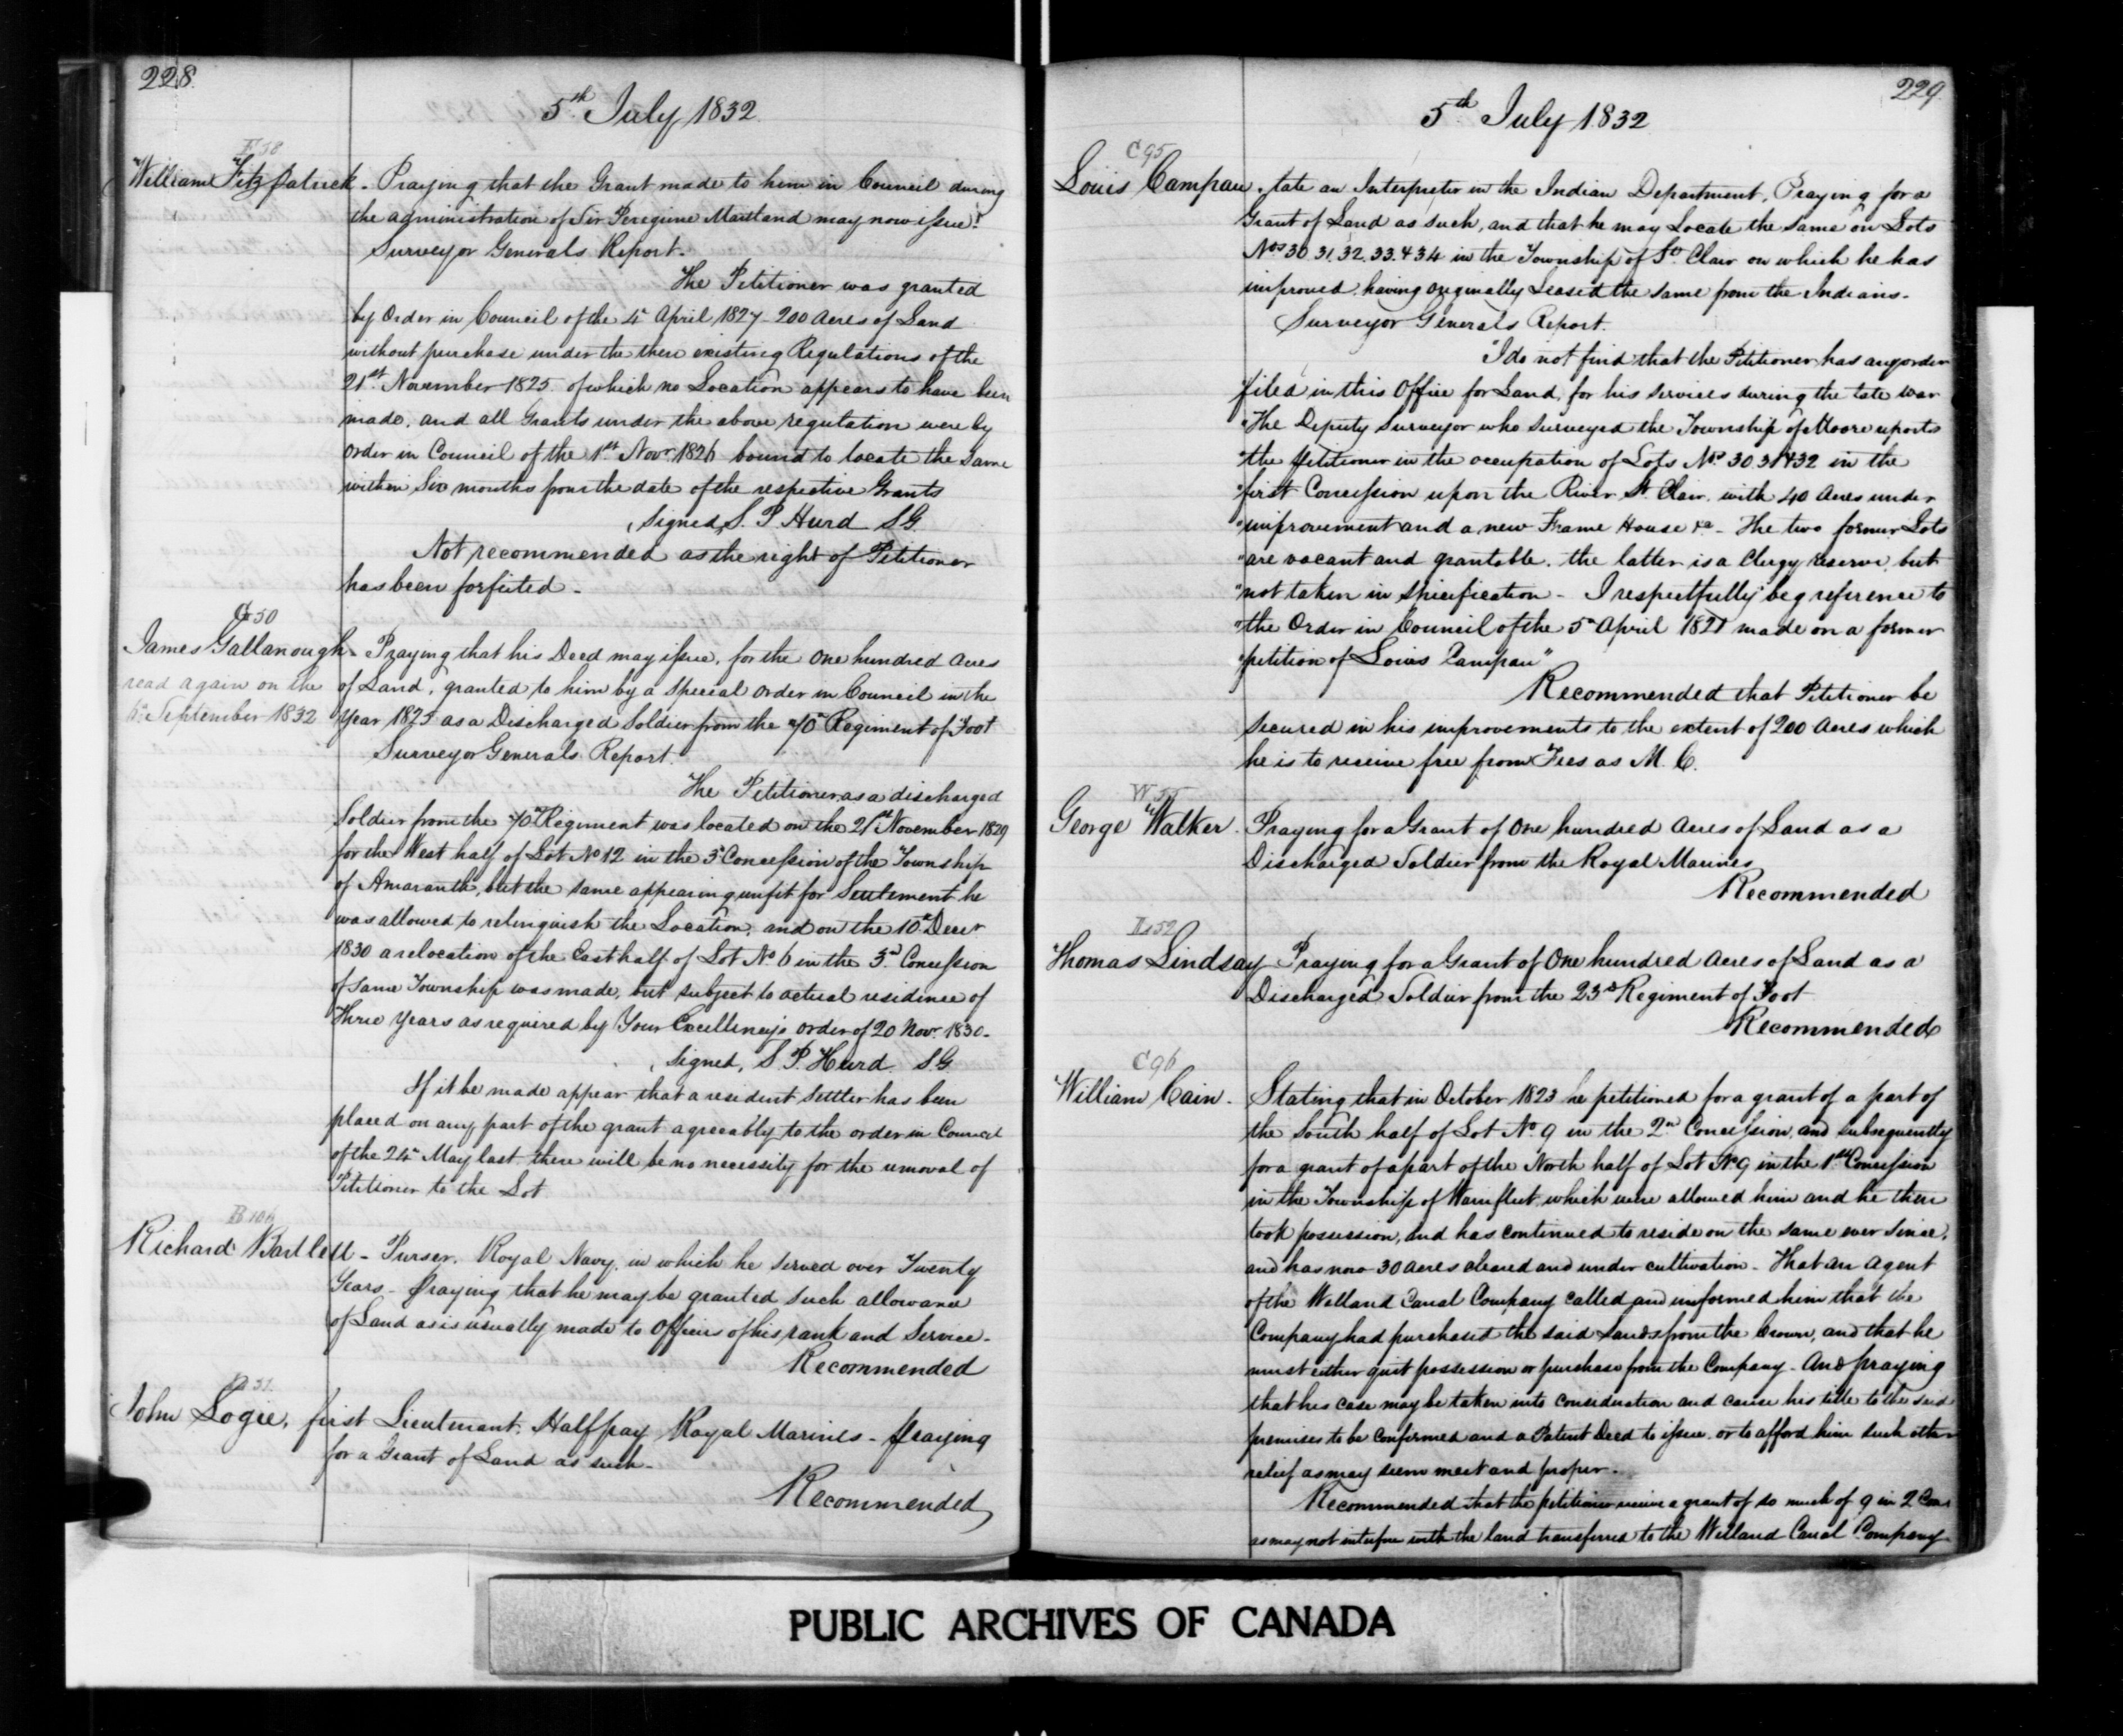 228
5th July 1832
F 38
William Fitzpatrick - Praying that the Grant made to him in Council during
the administration of Sir Peregrine Maitland may now issue.
Surveyor Generals Report.
The Petitioner was granted
by Order in Council of the 4th April 1827 - 200 Acres of Land
without purchase under the then existing Regulations of the
21st November 1825 of which no Location appears to have been
made, and all Grants under the above regulation were by
order in Council of the 1st Novr 1826 bound to locate the same
within Six months from the date of the respective Grants
Signed, S. P. Hurd S G
Not recommended as the right of Petitioner
has been forfeited -
G 50
James Gallanough - Praying that his Deed may issue, for the One hundred Acres
read again on the of Land, granted to him by a Special Order in Council in the
6th September 1832 Year 1825 as a Discharged Soldier from the 70th Regiment of Foot
Surveyor Generals Report.
The Petitioner as a discharged
Soldier from the 70th Regiment was located on the 21st November 1829
for the West half of Lot No 12 in the 3d Concession of the Township
of Amaranth, but the same appearing unfit for Settlement he
was allowed to relinquish the Location, and on the 10th Decr
1830 a relocation of the East half of Lot No 6 in the 3d Concession
of same Township was made, but subject to actual residence of
Three Years as required by Your Excellency's order of 20 Novr 1830 -
Signed, S. P. Hurd. S G
If it be made appear that a resident settler has been
placed on any part of the grant agreeably to the order in Council
of the 24th May last there will be no necessity for the removal of
Petitioner to the Lot
B 106
Richard Bartlett - Purser, Royal Navy, in which he served over Twenty
Years - Praying that he may be granted such allowance
of Land as is usually made to Officers of his rank and Service -
Recommended
51.
John Logie, first Lieutenant, Half pay Royal Marines - Praying
for a Grant of Land as such -
Recommended
229
5th July 1832
C 95
Louis Campau, late an Interpreter in the Indian Department, Praying for a
Grant of Land as such, and that he may Locate the same on Lots
Nos 30. 31. 32. 33. & 34 in the Township of St Clair on which he has
improved, having originally Leased the same from the Indians -
Surveyor Generals Report.
"I do not find that the Petitioner has any order
"filed in this Office for Land, for his services during the late war
"The Deputy Surveyor who surveyed the Township of Moore reports
"the petitioner in the occupation of Lots Nos 30 31 & 32 in the
"first Concession upon the River St Clair, with 40 Acres under
"improvement and a new Frame House &a - The two former Lots
"are vacant and grantable, the latter is a Clergy reserve, but
"not taken in specification - I respectfully beg reference to
"the Order in Council of the 5th April 1827 made on a former
"petition of Louis Campau"
Recommended that Petitioner be
secured in his improvements to the extent of 200 Acres which
he is to receive free from Fees as M. C.
W 55
George Walker. Praying for a Grant of One hundred Acres of Land as a
Discharged Soldier from the Royal Marines
Recommended
L 52
Thomas Lindsay Praying for a Grant of One hundred Acres of Land as a
Discharged Soldier from the 23d Regiment of Foot
Recommended
C 96
William Cain. Stating that in October 1823 he petitioned for a grant of a part of
the South half of Lot No 9 in the 2nd Concession, and subsequently
for a grant of a part of the North half of Lot No 9 in the 1st Concession
in the Township of Wainfleet, which were allowed him and he then
took possession, and has continued to reside on the same ever since,
and has now 30 Acres cleared and under cultivation - That an Agent
of the Welland Canal Company called and informed him that the
Company had purchased the said Lands from the Crown, and that he
must either quit possession or purchase from the Company - And praying
that his case may be taken into consideration and cause his title to the said
premises to be confirmed and a Patent Deed to issue, or to afford him such other
relief as may seem meet and proper -
Recommended that the petitioner receive a grant of so much of 9 in 2 Con
as may not interfere with the land transferred to the Welland Canal Company
PUBLIC ARCHIVES OF CANADA